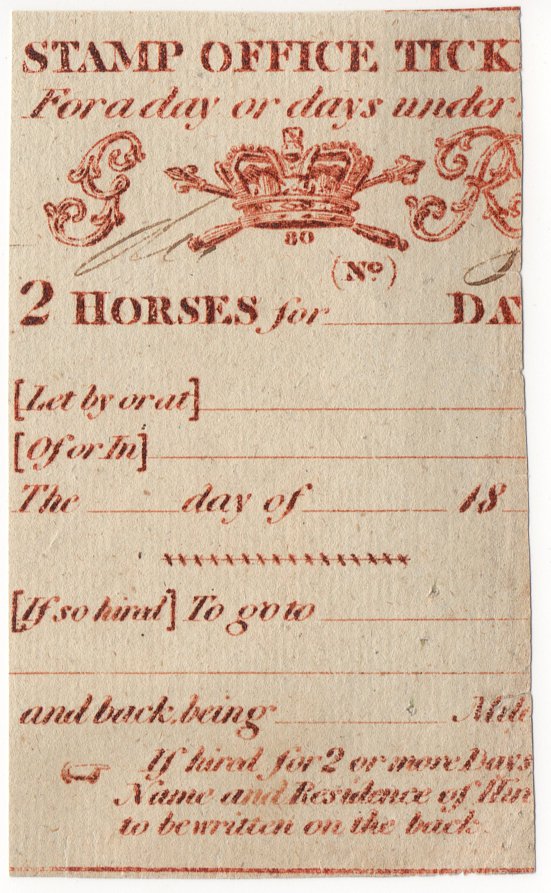 STAMP OFFICE TICK
For a day or days under
G R
80
(No)
2 HORSES for DA
[Let by or at]
[Of or In]
The day of 18
[If so hired] To go to
and back, being Mile
If hired for 2 or more Days
Name and Residence of Hir
to be written on the back.